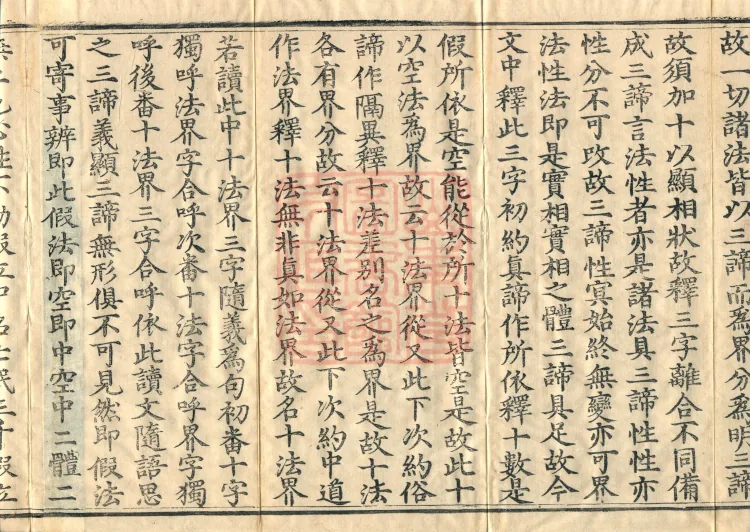 故一切諸法皆以三諦而爲界分爲明三諦
故須加十以顯相狀故釋三字離合不同備
成三諦言法性者亦是諸法具三諦性性亦
性分不可改故三諦性冥始終無變亦可界
法性法即是實相實相之體三諦具足故今
文中釋此三字初約眞諦作所依釋十數是
假所依是空能從於所十法皆空是故此十
以空法爲界故云十法界從又此下次約俗
諦作隔異釋十法差別名之爲界是故十法
各有界分故云十法界從又此下次約中道
作法界釋十法無非眞如法界故名十法界
若讀此中十法界三字隨義爲句初番十字
獨呼法界字合呼次番十法字合呼界字獨
呼後番十法界三字合呼依此讀文隨語思
之三諦義顯三諦無形俱不可見然即假法
可寄事辨即此假法即空即中空中二體二